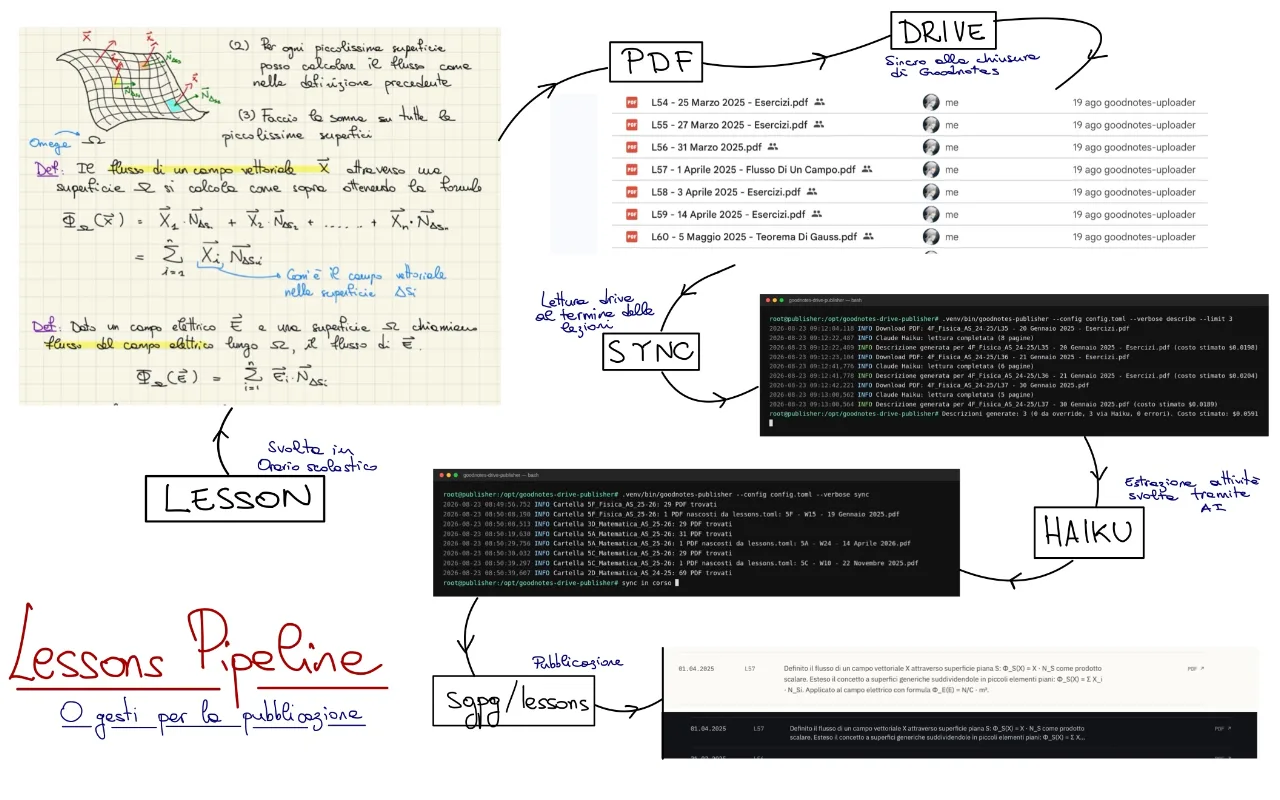 (2) Per ogni piccolissima superficie
posso calcolare il flusso come
nella definizione precedente
(3) Faccio la somma su tutte le
piccolissime superfici
Omega Ω
Def: Il flusso di un campo vettoriale X attraverso una
superficie Ω si calcola come sopra ottenendo la formula
Φ_Ω(X) = X₁·N_ΔS₁ + X₂·N_ΔS₂ + ...... + Xₙ·N_ΔSₙ
= Σ_{i=1}^{n} Xᵢ N_ΔSᵢ
Com'è il campo vettoriale
nella superficie ΔSi
Def: Dato un campo elettrico E e una superficie Ω chiamiamo
flusso del campo elettrico lungo Ω, il flusso di E.
Φ_Ω(E) = Σ_{i=1}^{n} Eᵢ·N_ΔSᵢ
Svolta in
Orario scolastico
LESSON
PDF
DRIVE
Sincro alla chiusura
di Goodnotes
L54 - 25 Marzo 2025 - Esercizi.pdf me 19 ago goodnotes-uploader
L55 - 27 Marzo 2025 - Esercizi.pdf me 19 ago goodnotes-uploader
L56 - 31 Marzo 2025.pdf me 19 ago goodnotes-uploader
L57 - 1 Aprile 2025 - Flusso Di Un Campo.pdf me 19 ago goodnotes-uploader
L58 - 3 Aprile 2025 - Esercizi.pdf me 19 ago goodnotes-uploader
L59 - 14 Aprile 2025 - Esercizi.pdf me 19 ago goodnotes-uploader
L60 - 5 Maggio 2025 - Teorema Di Gauss.pdf me 19 ago goodnotes-uploader
Lettura drive
al termine delle
lezioni
SYNC
goodnotes-drive-publisher — bash
root@publisher:/opt/goodnotes-drive-publisher# .venv/bin/goodnotes-publisher --config config.toml --verbose describe --limit 3
2026-08-23 09:12:04,118 INFO Download PDF: 4F_Fisica_AS_24-25/L35 - 20 Gennaio 2025 - Esercizi.pdf
2026-08-23 09:12:22,487 INFO Claude Haiku: lettura completata (8 pagine)
2026-08-23 09:12:22,489 INFO Descrizione generata per 4F_Fisica_AS_24-25/L35 - 20 Gennaio 2025 - Esercizi.pdf (costo stimato $0.0198)
2026-08-23 09:12:23,104 INFO Download PDF: 4F_Fisica_AS_24-25/L36 - 21 Gennaio 2025 - Esercizi.pdf
2026-08-23 09:12:41,776 INFO Claude Haiku: lettura completata (6 pagine)
2026-08-23 09:12:41,778 INFO Descrizione generata per 4F_Fisica_AS_24-25/L36 - 21 Gennaio 2025 - Esercizi.pdf (costo stimato $0.0204)
2026-08-23 09:12:42,221 INFO Download PDF: 4F_Fisica_AS_24-25/L37 - 30 Gennaio 2025.pdf
2026-08-23 09:13:00,562 INFO Claude Haiku: lettura completata (5 pagine)
2026-08-23 09:13:00,564 INFO Descrizione generata per 4F_Fisica_AS_24-25/L37 - 30 Gennaio 2025.pdf (costo stimato $0.0189)
root@publisher:/opt/goodnotes-drive-publisher# Descrizioni generate: 3 (0 da override, 3 via Haiku, 0 errori). Costo stimato: $0.0591
Estrazione attività
svolta tramite
AI
HAIKU
goodnotes-drive-publisher — bash
root@publisher:/opt/goodnotes-drive-publisher# .venv/bin/goodnotes-publisher --config config.toml --verbose sync
2026-08-23 08:49:56,752 INFO Cartella 5F_Fisica_AS_25-26: 29 PDF trovati
2026-08-23 08:50:08,198 INFO Cartella 5F_Fisica_AS_25-26: 1 PDF nascosti da lessons.toml: 5F - W15 - 19 Gennaio 2025.pdf
2026-08-23 08:50:08,513 INFO Cartella 3D_Matematica_AS_25-26: 29 PDF trovati
2026-08-23 08:50:19,630 INFO Cartella 5A_Matematica_AS_25-26: 31 PDF trovati
2026-08-23 08:50:29,756 INFO Cartella 5A_Matematica_AS_25-26: 1 PDF nascosti da lessons.toml: 5A - W24 - 14 Aprile 2026.pdf
2026-08-23 08:50:30,032 INFO Cartella 5C_Matematica_AS_25-26: 29 PDF trovati
2026-08-23 08:50:39,297 INFO Cartella 5C_Matematica_AS_25-26: 1 PDF nascosti da lessons.toml: 5C - W10 - 22 Novembre 2025.pdf
2026-08-23 08:50:39,607 INFO Cartella 2D_Matematica_AS_24-25: 69 PDF trovati
root@publisher:/opt/goodnotes-drive-publisher# sync in corso
Lessons Pipeline
0 gesti per la pubblicazione
sgpg/lessons
Pubblicazione
01.04.2025 L57 Definito il flusso di un campo vettoriale X attraverso superficie piana S: Φ_S(X) = X · N_S come prodotto PDF ↗
scalare. Esteso il concetto a superfici generiche suddividendole in piccoli elementi piani: Φ_S(X) = Σ X_i
· N_Si. Applicato al campo elettrico con formula Φ_E(E) = N/C · m².
01.04.2025 L57 Definito il flusso di un campo vettoriale X attraverso superficie piana S: Φ_S(X) = X · N_S come prodotto PDF ↗
scalare. Esteso il concetto a superfici generiche suddividendole in piccoli elementi piani: Φ_S(X) = Σ X...